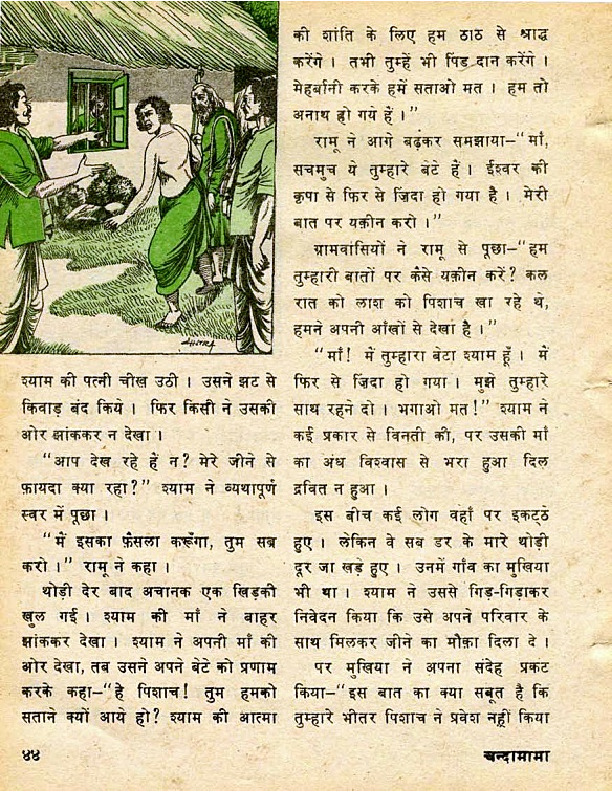 CHITRA
श्याम की पत्नी चीख उठी । उसने झट से
किवाड़ बंद किये । फिर किसी ने उसकी
ओर झांककर न देखा ।
“आप देख रहे हैं न? मेरे जीने से
फ़ायदा क्या रहा?” श्याम ने व्यथापूर्ण
स्वर में पूछा ।
“मैं इसका फ़ैसला करूँगा, तुम सब्र
करो ।” रामू ने कहा ।
थोड़ी देर बाद अचानक एक खिड़की
खुल गई । श्याम की माँ ने बाहर
झांककर देखा । श्याम ने अपनी माँ की
ओर देखा, तब उसने अपने बेटे को प्रणाम
करके कहा–“हे पिशाच! तुम हमको
सताने क्यों आये हो? श्याम की आत्मा
की शांति के लिए हम ठाठ से श्राद्ध
करेंगे । तभी तुम्हें भी पिंड दान करेंगे ।
मेहर्बानी करके हमें सताओ मत । हम तो
अनाथ हो गये हैं ।”
रामू ने आगे बढ़कर समझाया–“माँ,
सचमुच ये तुम्हारे बेटे हैं । ईश्वर की
कृपा से फिर से ज़िंदा हो गया है । मेरी
बात पर यक़ीन करो ।”
ग्रामवासियों ने रामू से पूछा–“हम
तुम्हारी बातों पर कैसे यक़ीन करें? कल
रात को लाश को पिशाच खा रहे थे,
हमने अपनी आँखों से देखा है ।”
“माँ! मैं तुम्हारा बेटा श्याम हूँ । मैं
फिर से ज़िंदा हो गया । मुझे तुम्हारे
साथ रहने दो । भगाओ मत!” श्याम ने
कई प्रकार से विनती की, पर उसकी माँ
का अंध विश्वास से भरा हुआ दिल
द्रवित न हुआ ।
इस बीच कई लोग वहाँ पर इकट्ठे
हुए । लेकिन वे सब डर के मारे थोड़ी
दूर जा खड़े हुए । उनमें गाँव का मुखिया
भी था । श्याम ने उससे गिड़-गिड़ाकर
निवेदन किया कि उसे अपने परिवार के
साथ मिलकर जीने का मौक़ा दिला दे ।
पर मुखिया ने अपना संदेह प्रकट
किया–“इस बात का क्या सबूत है कि
तुम्हारे भीतर पिशाच ने प्रवेश नहीं किया
४४
चन्दामामा